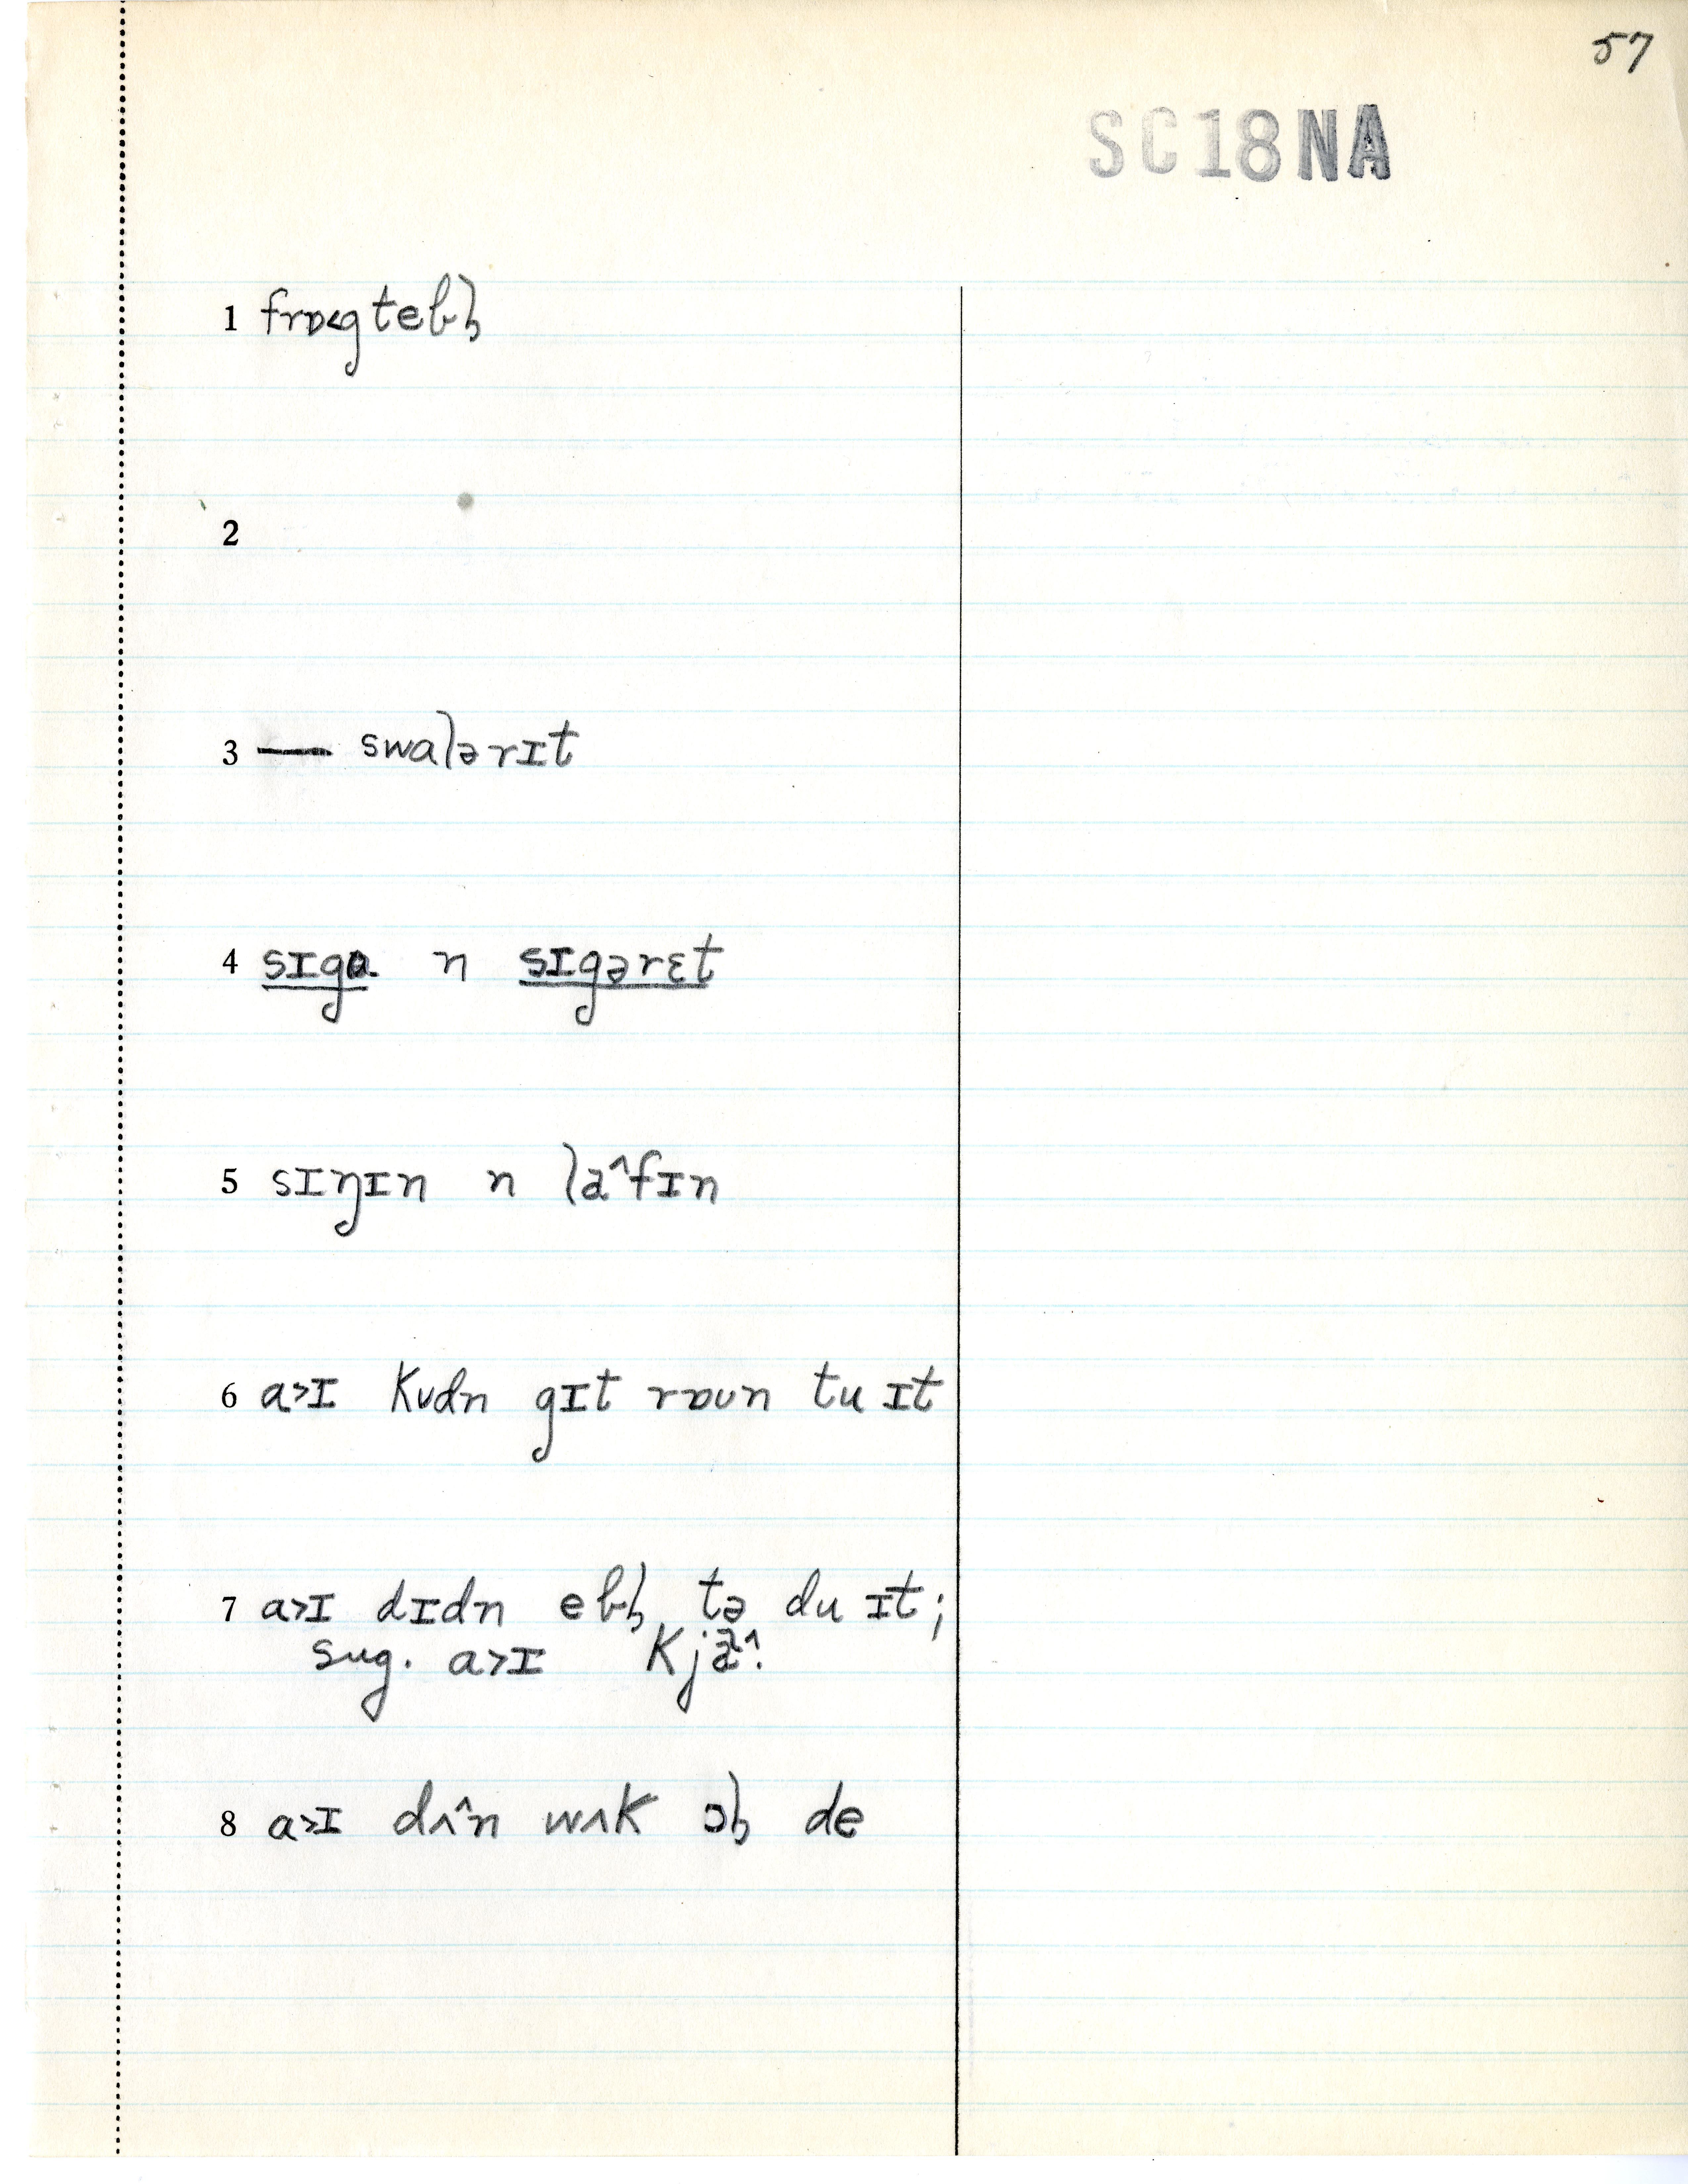 57
SC18NA
1 frɒ<gtebl̩
2
3 — swalərɪt
4 sɪgɑ n sɪgərɛt
5 sɪŋɪn n la^fɪn
6 a>ɪ kʊdn gɪt rɒʊn tu ɪt
7 a>ɪ dɪdn ebl̩ tə du ɪt;
sug. a>ɪ kjã^:
8 a>ɪ dʌ^n wʌk ɔl̩ de